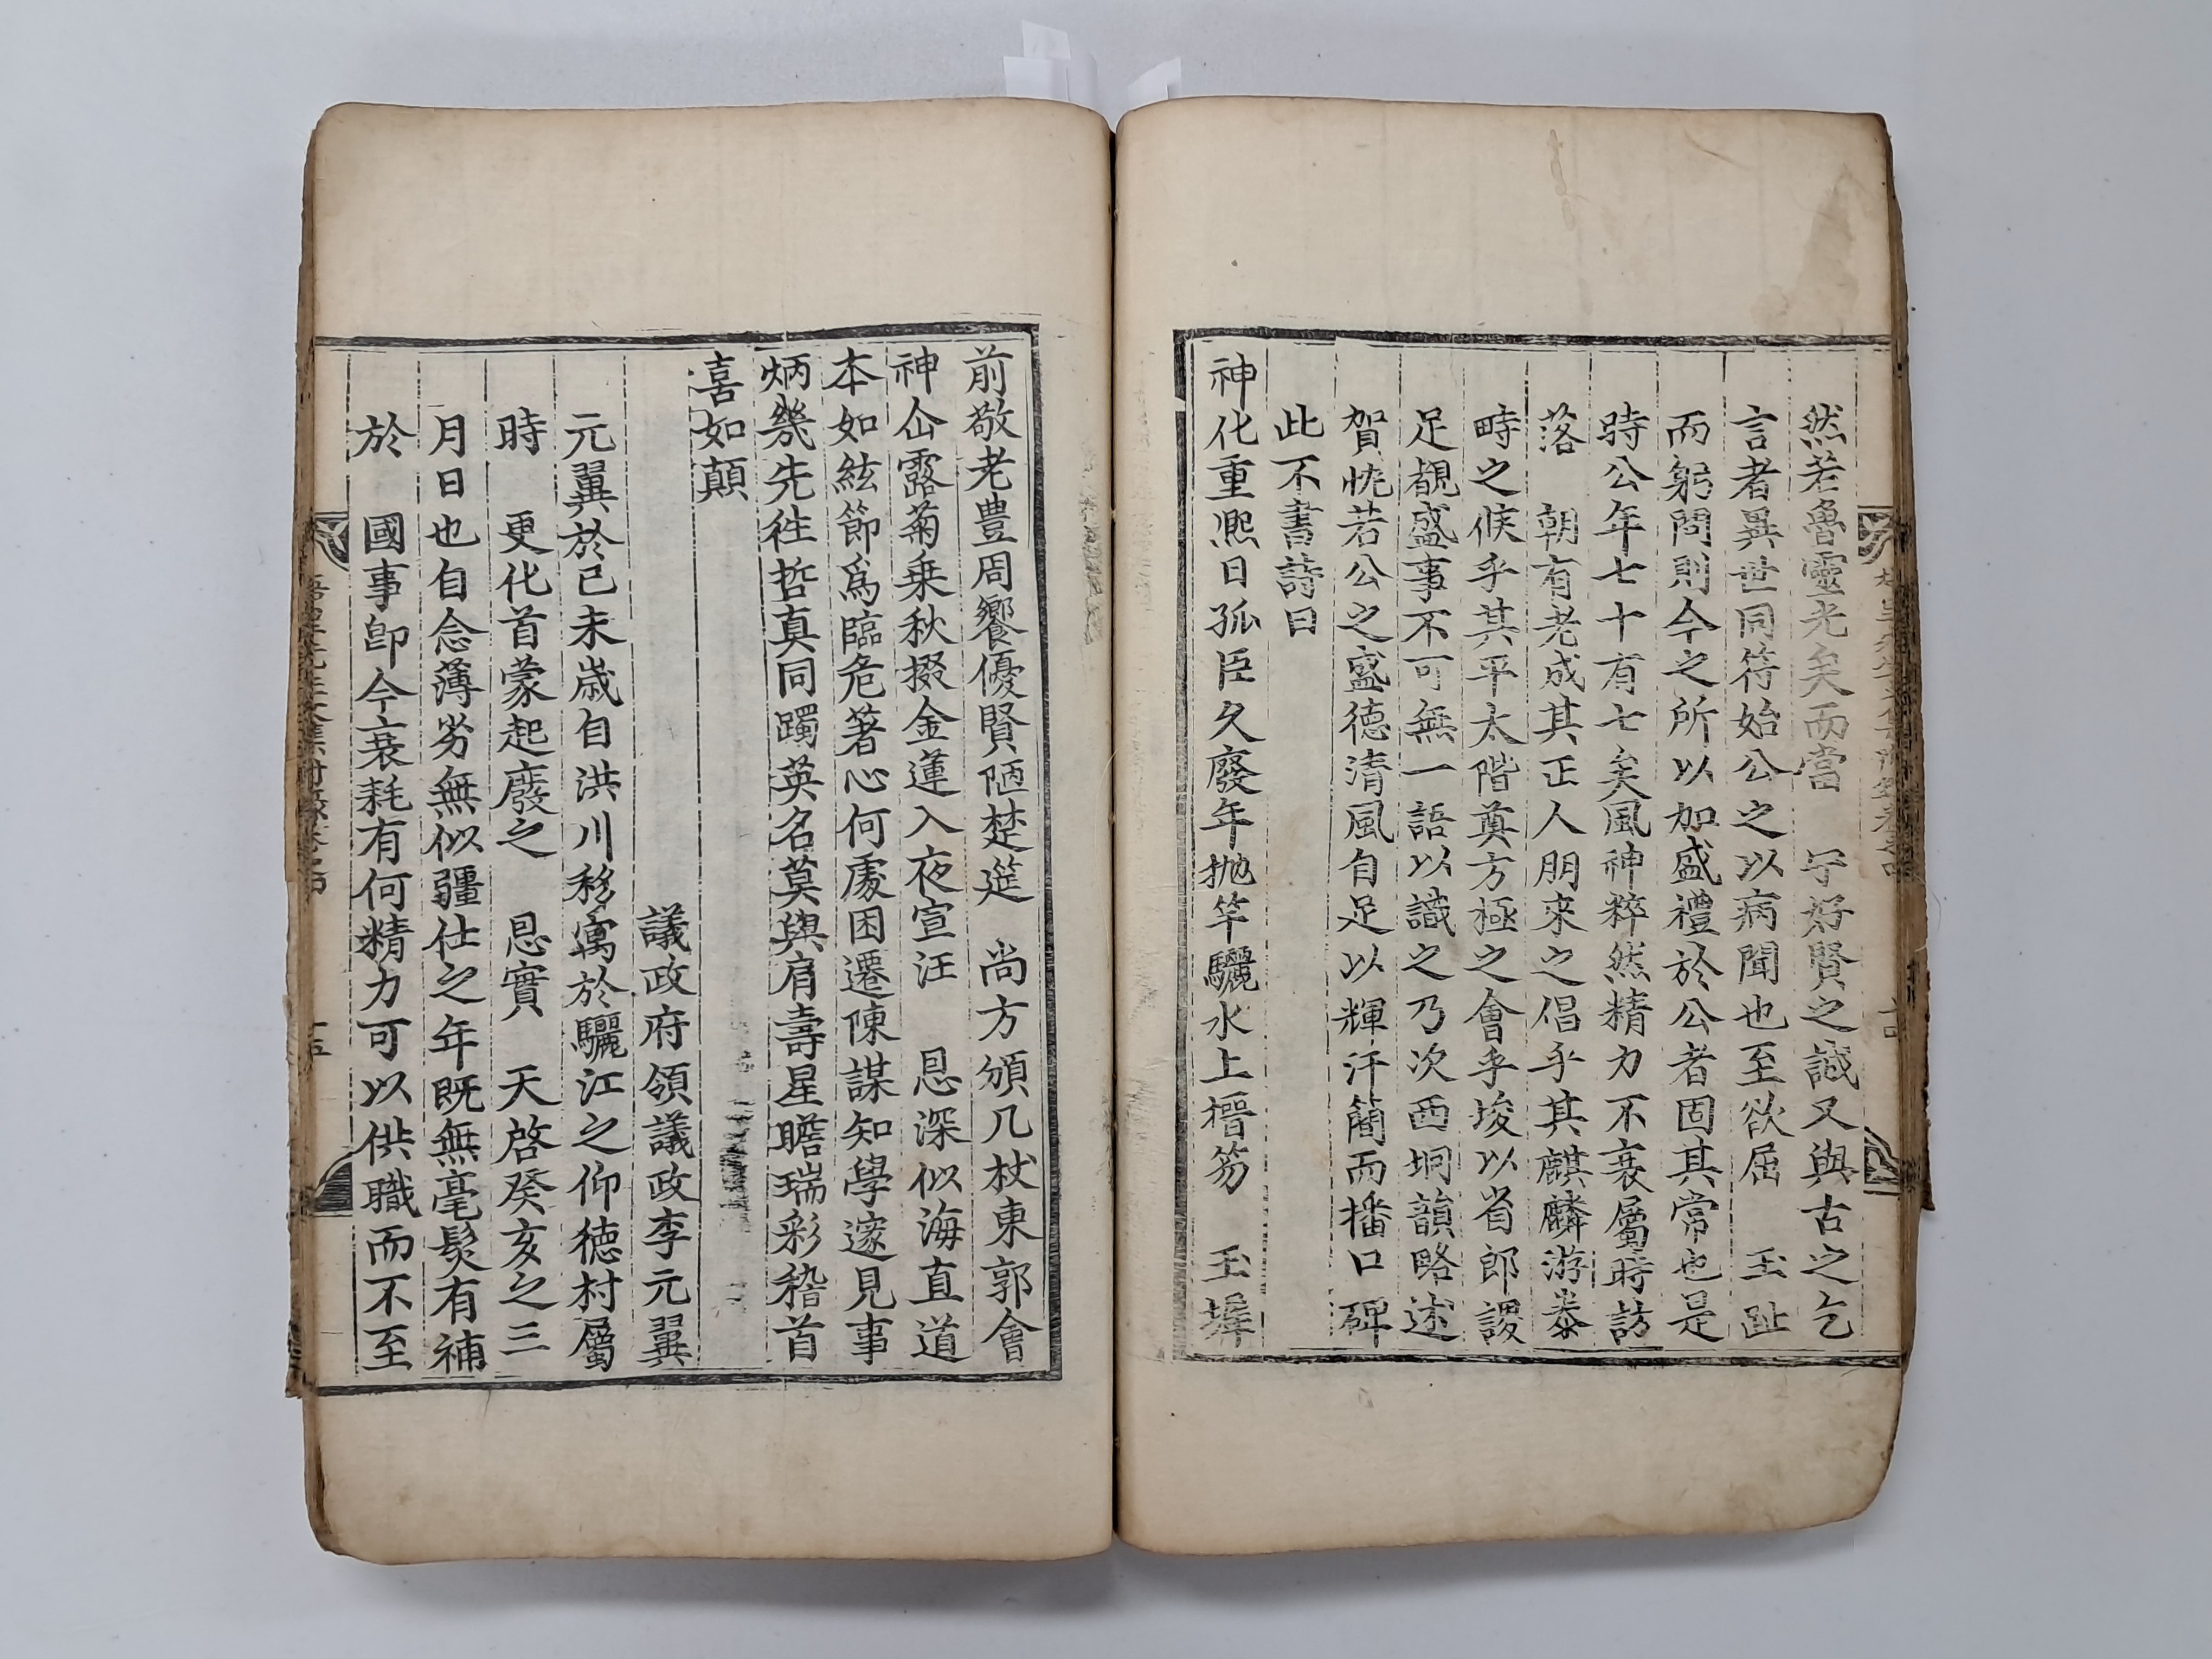 然若魯靈光矣而當 宁好賢之誠又與古之乞
言者異世同符始公之以病聞也至欲屈 玉趾
而躬問則今之所以加盛禮於公者固其常也是
時公年七十有七矣風神粹然精力不衰屬時訪
落 朝有老成其正人朋來之倡乎其麒麟游泰
畤之候乎其平太階奠方極之會乎埈以省郎謏
足覩盛事不可無一語以識之乃次西坰韻略述
賀忱若公之盛德淸風自足以輝汗簡而播口碑
此不書詩曰
神化重熙日孤臣久廢年抛竿驪水上搢笏 玉墀
前敬老豊周饗優賢陋楚筵 尚方頒几杖東郭會
神仚露菊乗秋掇金蓮入夜宣汪 恩深似海直道
本如絃節爲臨危著心何處困遷陳謀知學邃見事
炳幾先徃哲真同躅英名莫與肩壽星瞻瑞彩稽首
喜如顛
議政府領議政李元翼
元翼於己未歲自洪川移寓於驪江之仰德村屬
時 更化首蒙起廢之 恩實 天啓癸亥之三
月日也自念薄劣無似疆仕之年既無毫髮有補
於 國事卽今衰耗有何精力可以供職而不至
梧里先生文集附錄卷之四
十五